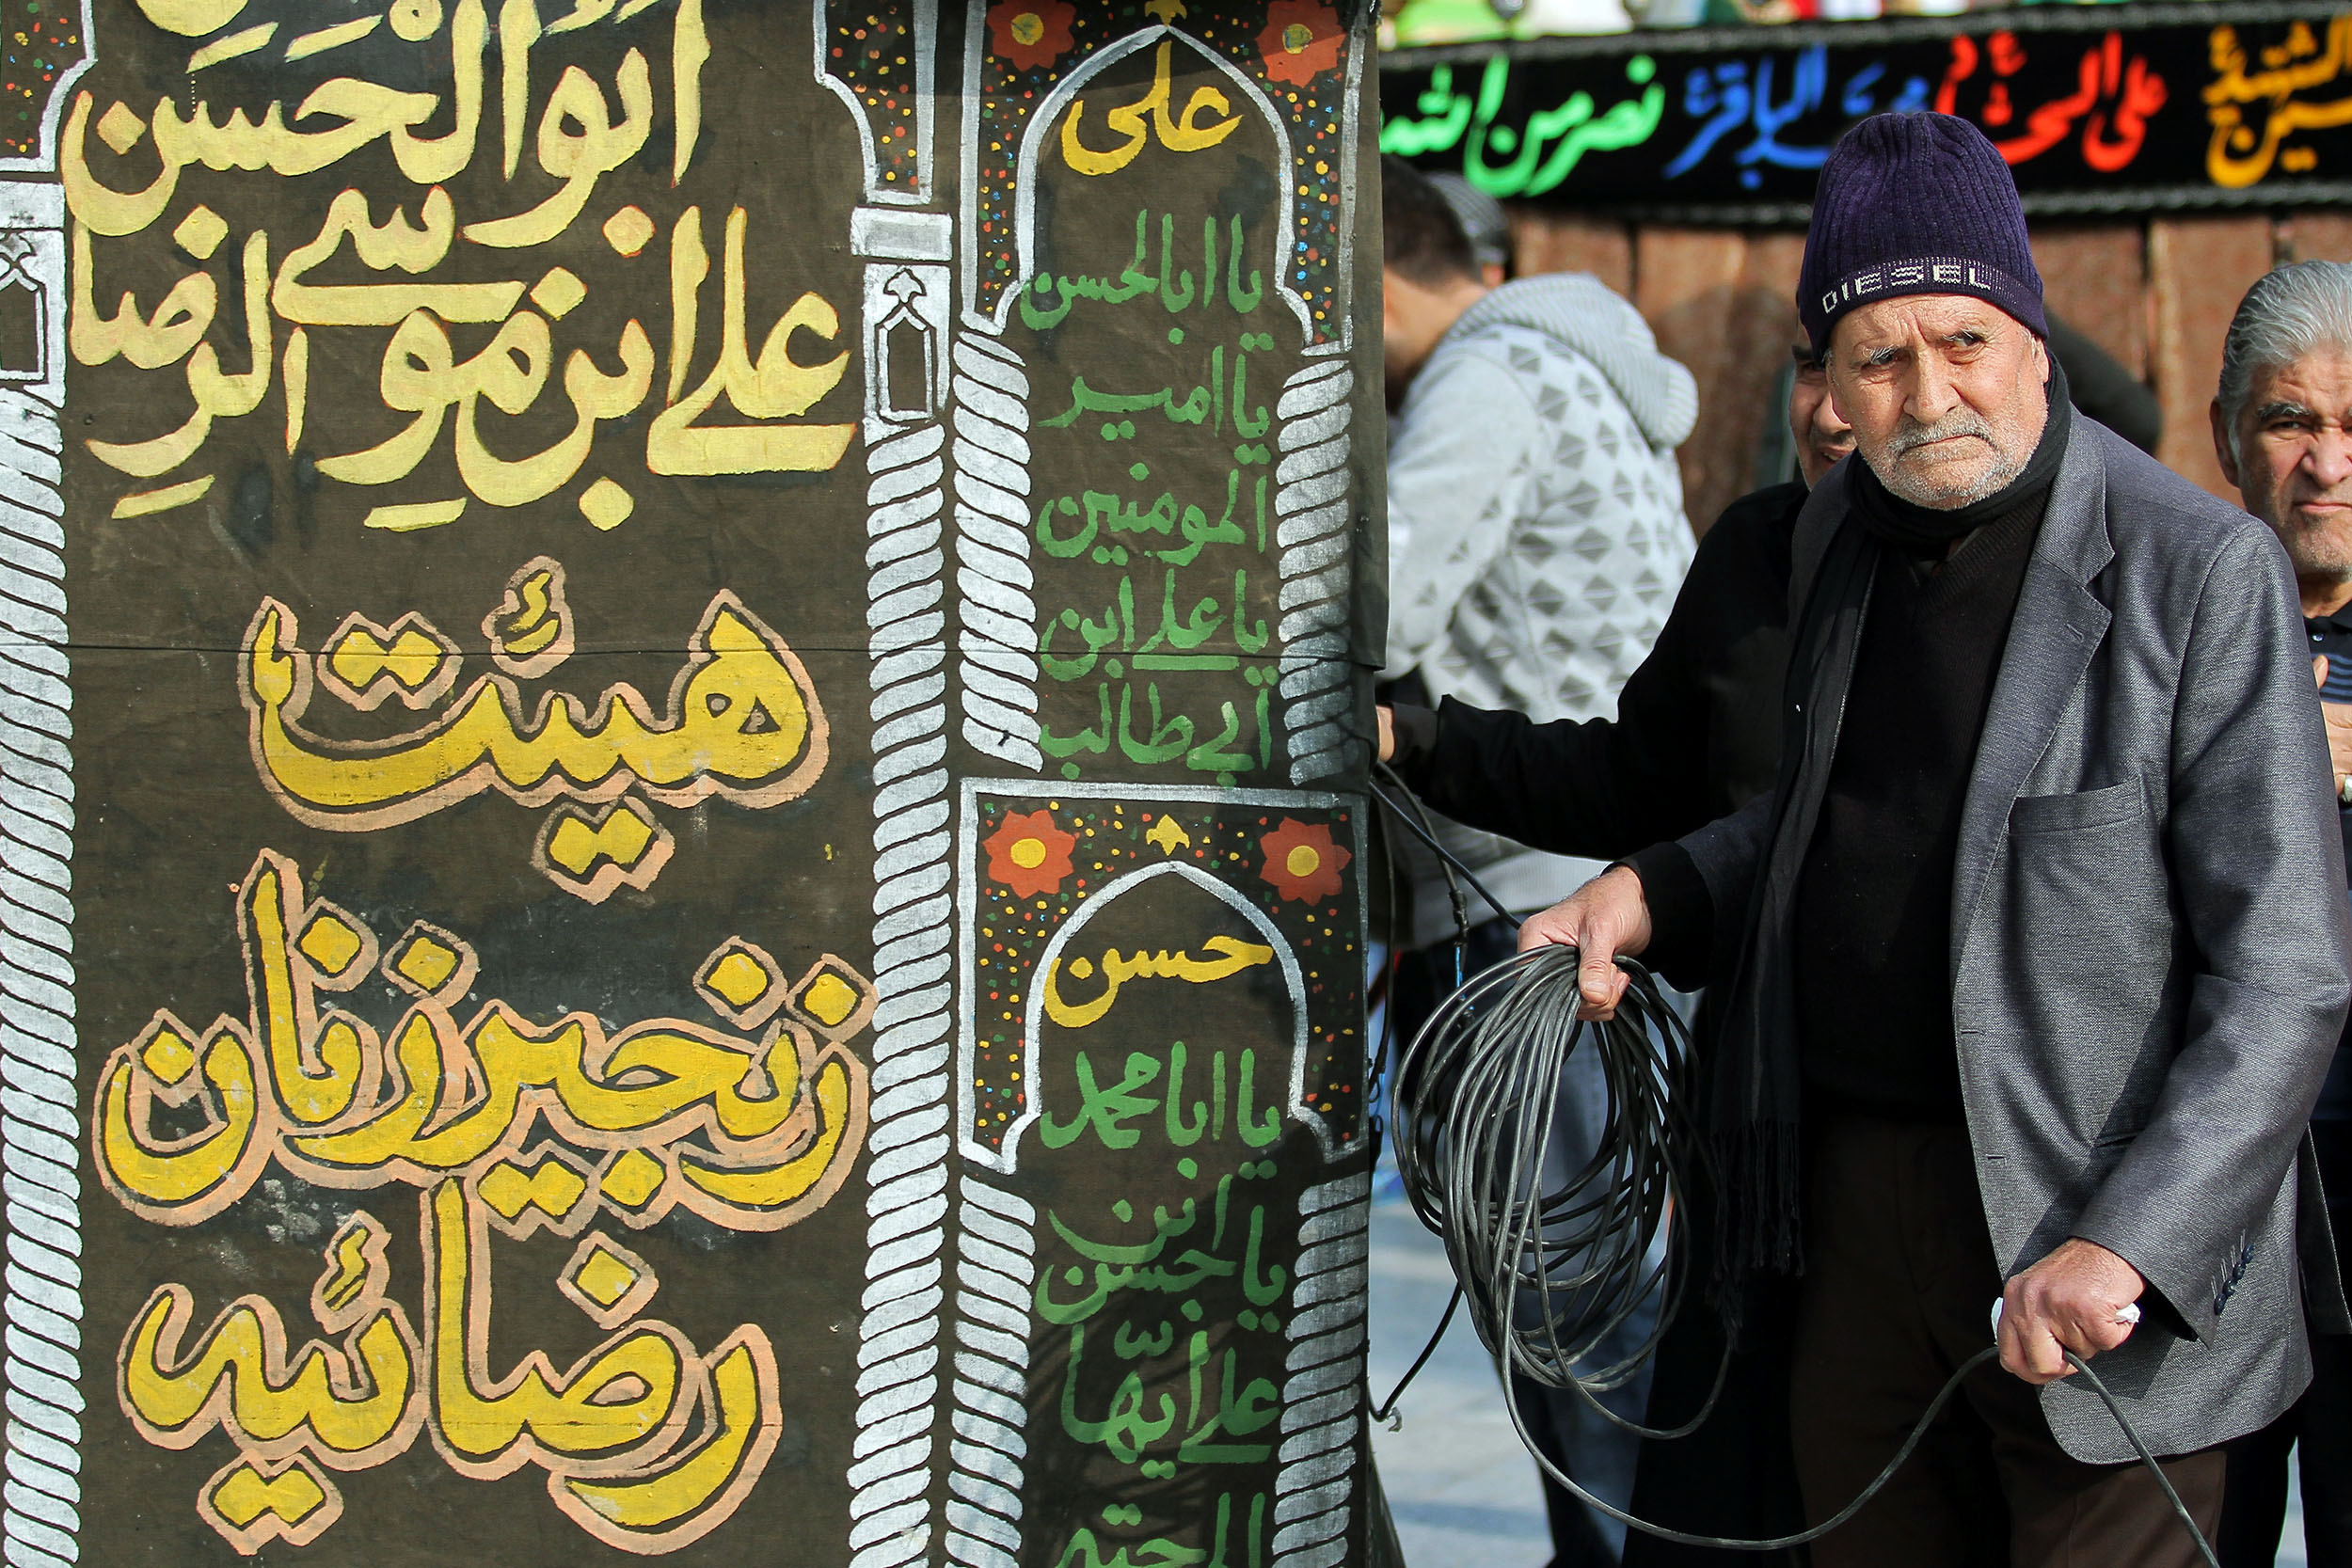 ابوالحسن
علی ابن موسی الرضا
هیئت
زنجیرزنان
رضائیه
علی
یا ابالحسن
یا امیر
المومنین
یا علی ابن
ابی طالب
حسن
یا ابا محمد
یا حسن ابن
علی ایّها
نصر من
محمد الباقر
علی
الشهید
DIESEL